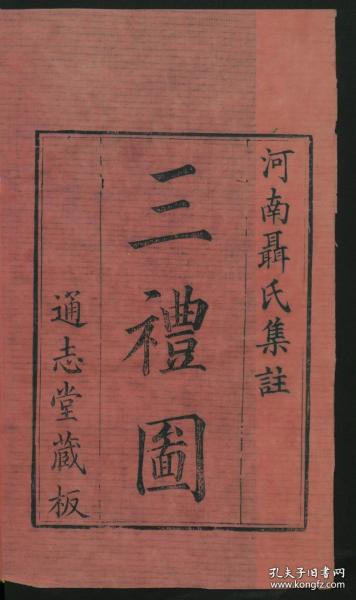 河南聶氏集註
三禮圖
通志堂藏板
孔夫子旧书网
www.kongfz.com